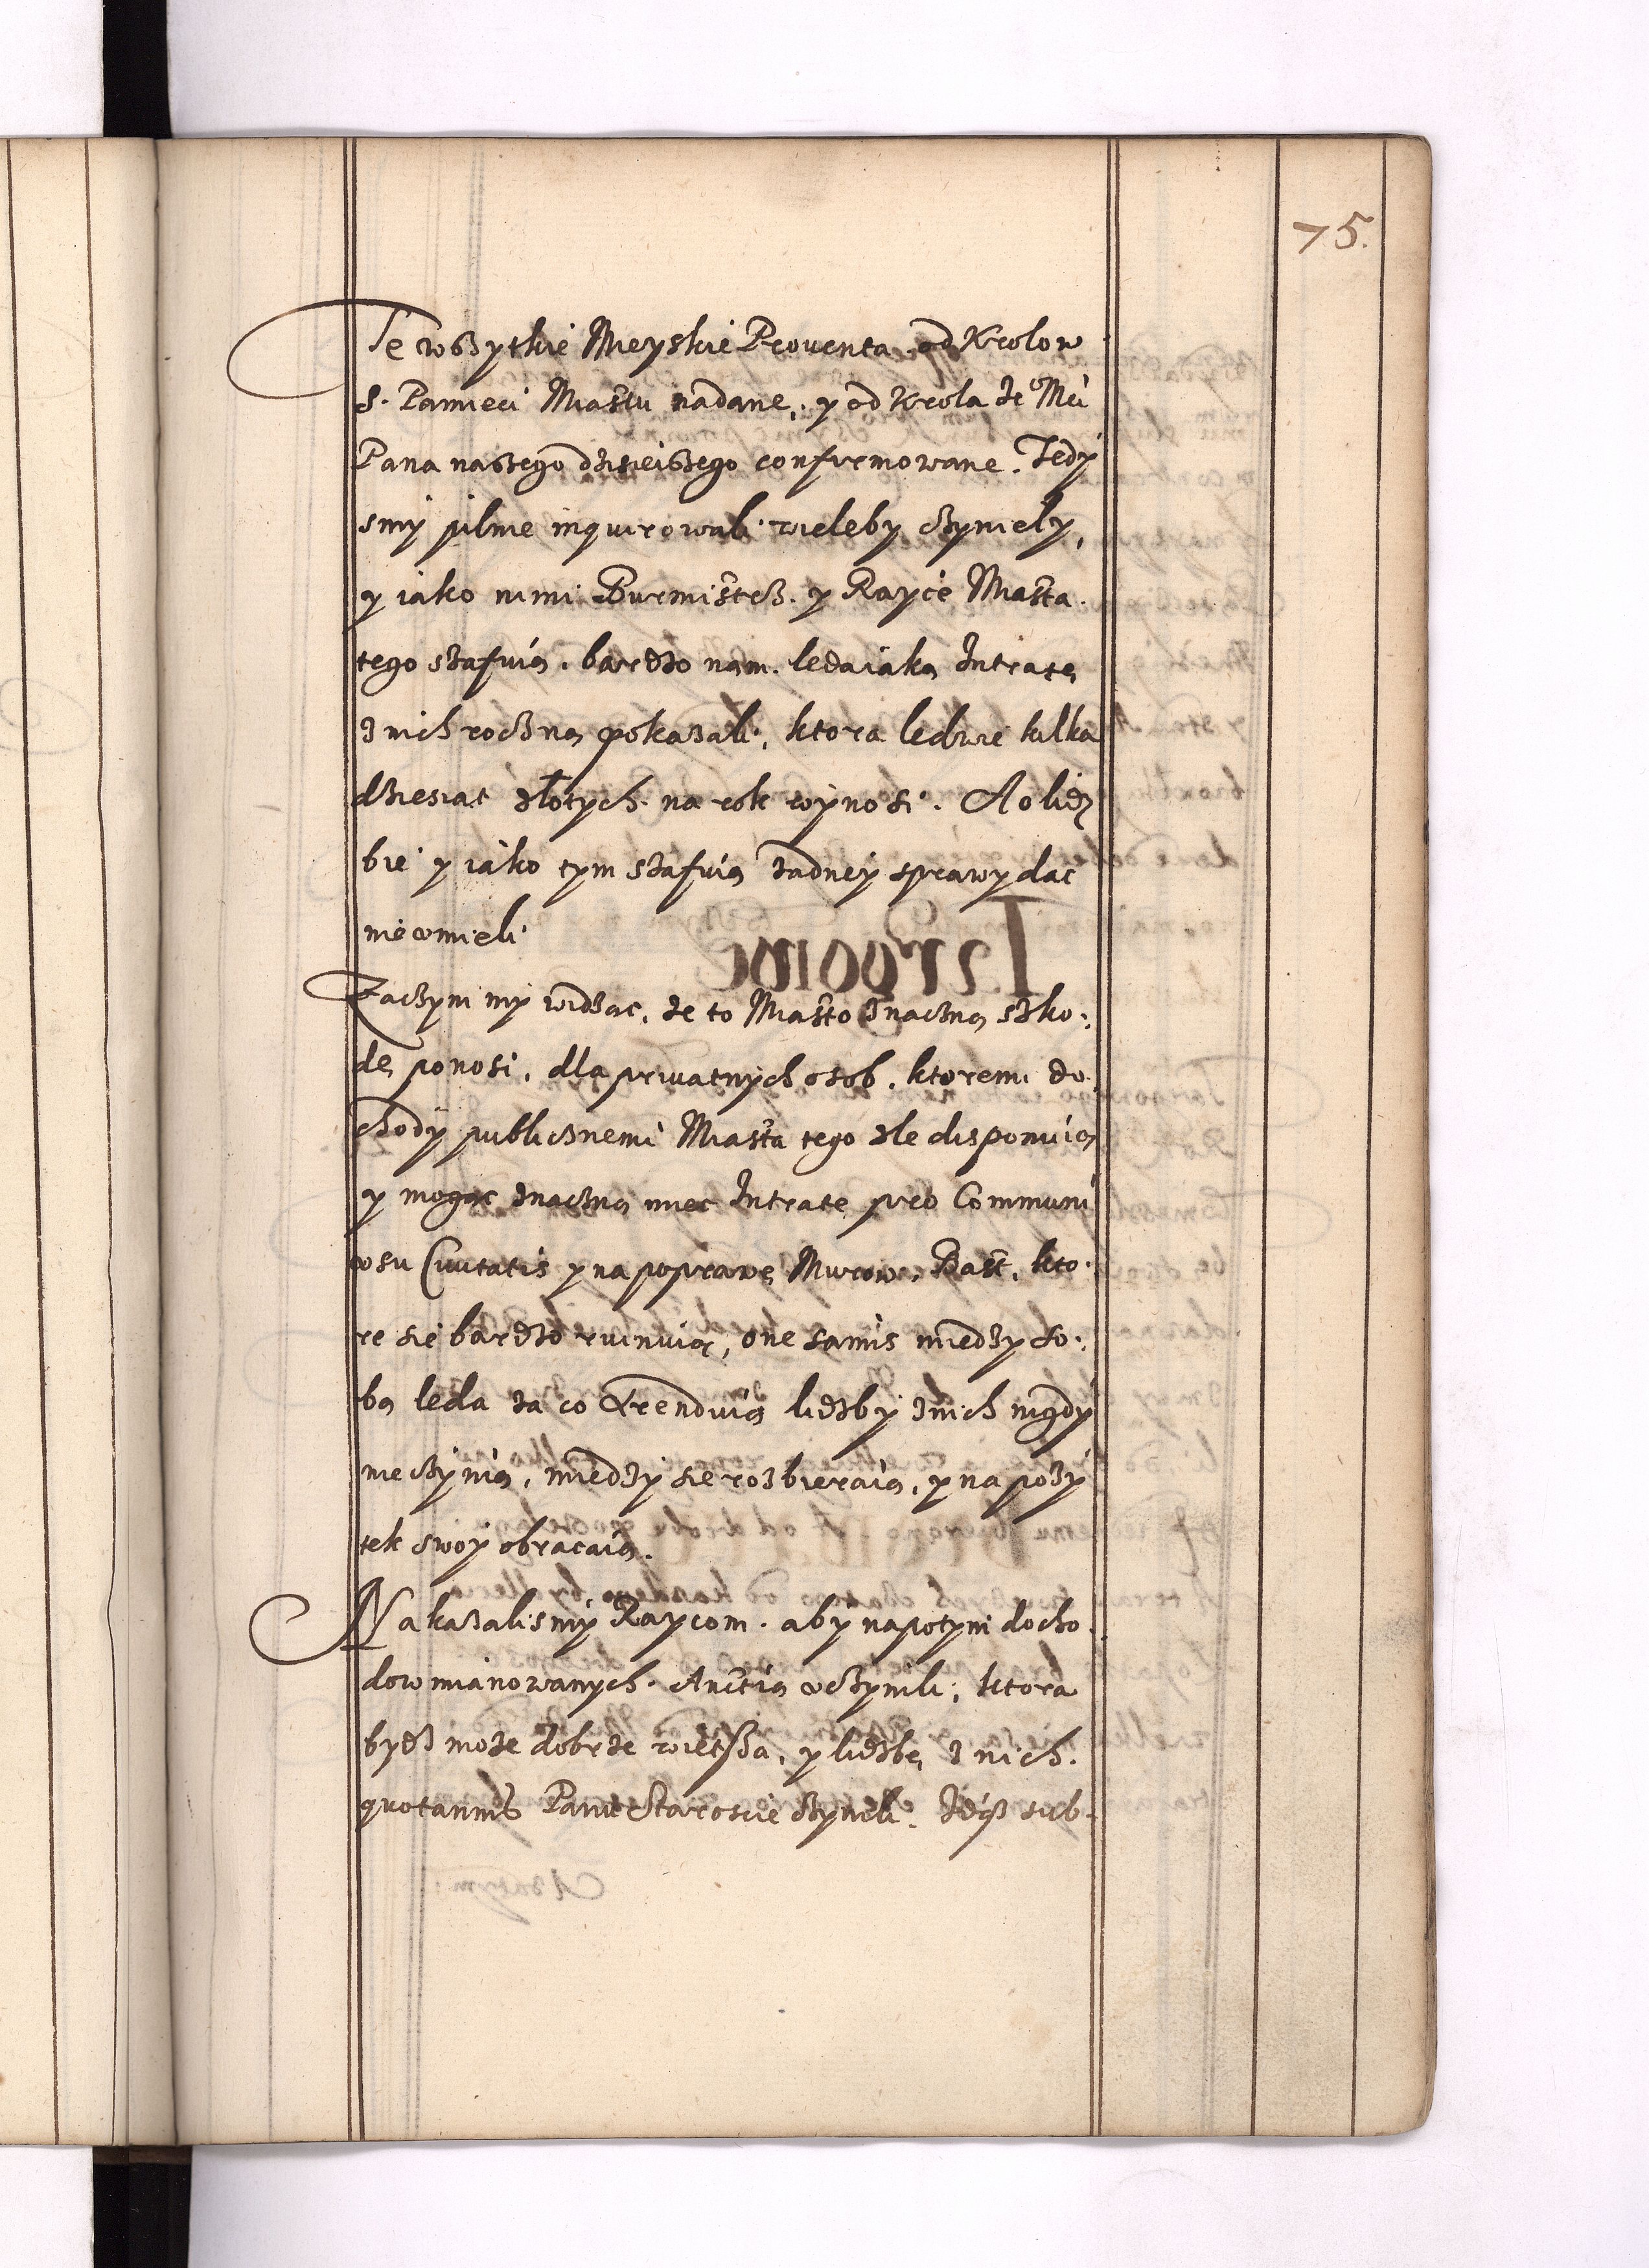 75.
Te wszytkie Mieyskie Proventa od Krolow
S. Pamieci Miastu nadane, y od Krola Je° Mci
Pana naszego dzisieiszego confirmowane. Tedy
smy pilnie inquirowali wieleby czynieły,
y iako nimi Burmistrz y Rayce Miasta
tego szafuią. bardzo nam ledaiaką Intratę
z nich roczną pokazali, ktora ledwie kilka
dziesiat złotych na rok wynosi. A o licz
bie y iako tym szafuią zadney sprawy dac
nie umieli
Zaczym my widzac, ze to Miasto znaczną szko:
dę ponosi, dla privatnych osob, ktoremi do
chody publicznemi Miasta tego zle disponuią
y mogąc znaczną miec Intratę pro Communi
usu Civitatis y na poprawę Murow, Baszt, kto:
re sie bardzo ruinuią, one samis miedzy so:
bą leda za co Arenduią liczby z nich nigdy
nie czynią, miedzy sie rozbieraią, y na pozy
tek swoy obracaią.
Nakazalismy Raycom aby napotym docho
dow mianowanych Auctią uczynili, ktora
bydz moze dobrze wietsza, y liczbę z nich
quotannis Panu Staroscie czynili. Idq3 sub